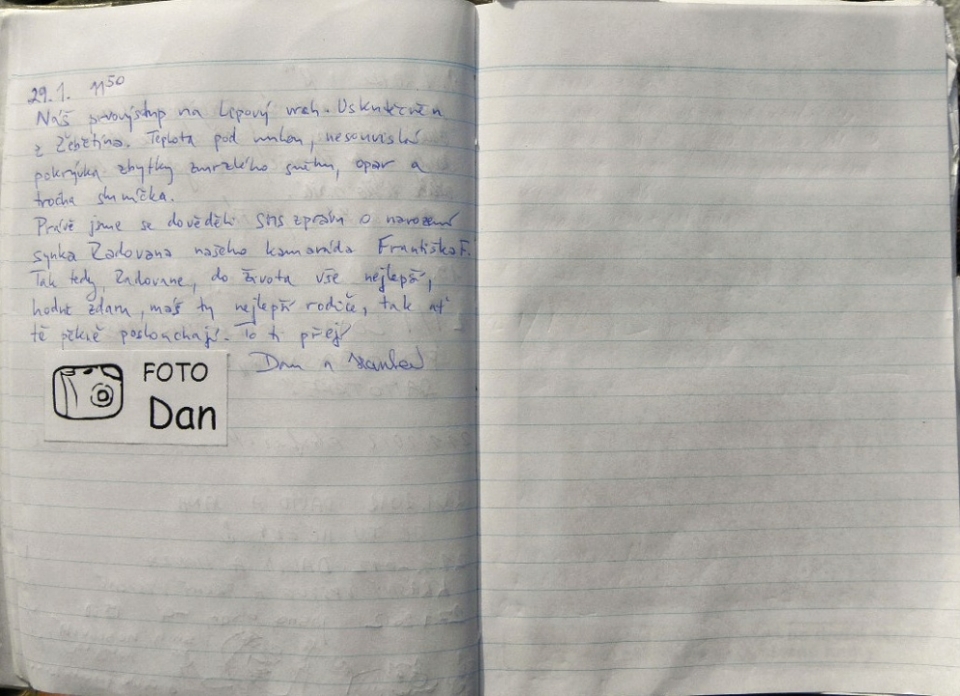 29.1. 11⁵⁰
Náš prvovýstup na Lipový vrch. Uskutečněn
z Žebětína. Teplota pod nulou, nesouvislá
pokrývka zbytky zmrzlého sněhu, opar a
trocha sluníčka.
Právě jsme se dověděli SMS zprávu o narození
synka Radovana našeho kamaráda Františka F.
Tak tedy, Radovane, do života vše nejlepší,
hodně zdaru, máš ty nejlepší rodiče, tak ať
tě pěkně poslouchají. To ti přejí
Dan a
FOTO
Dan